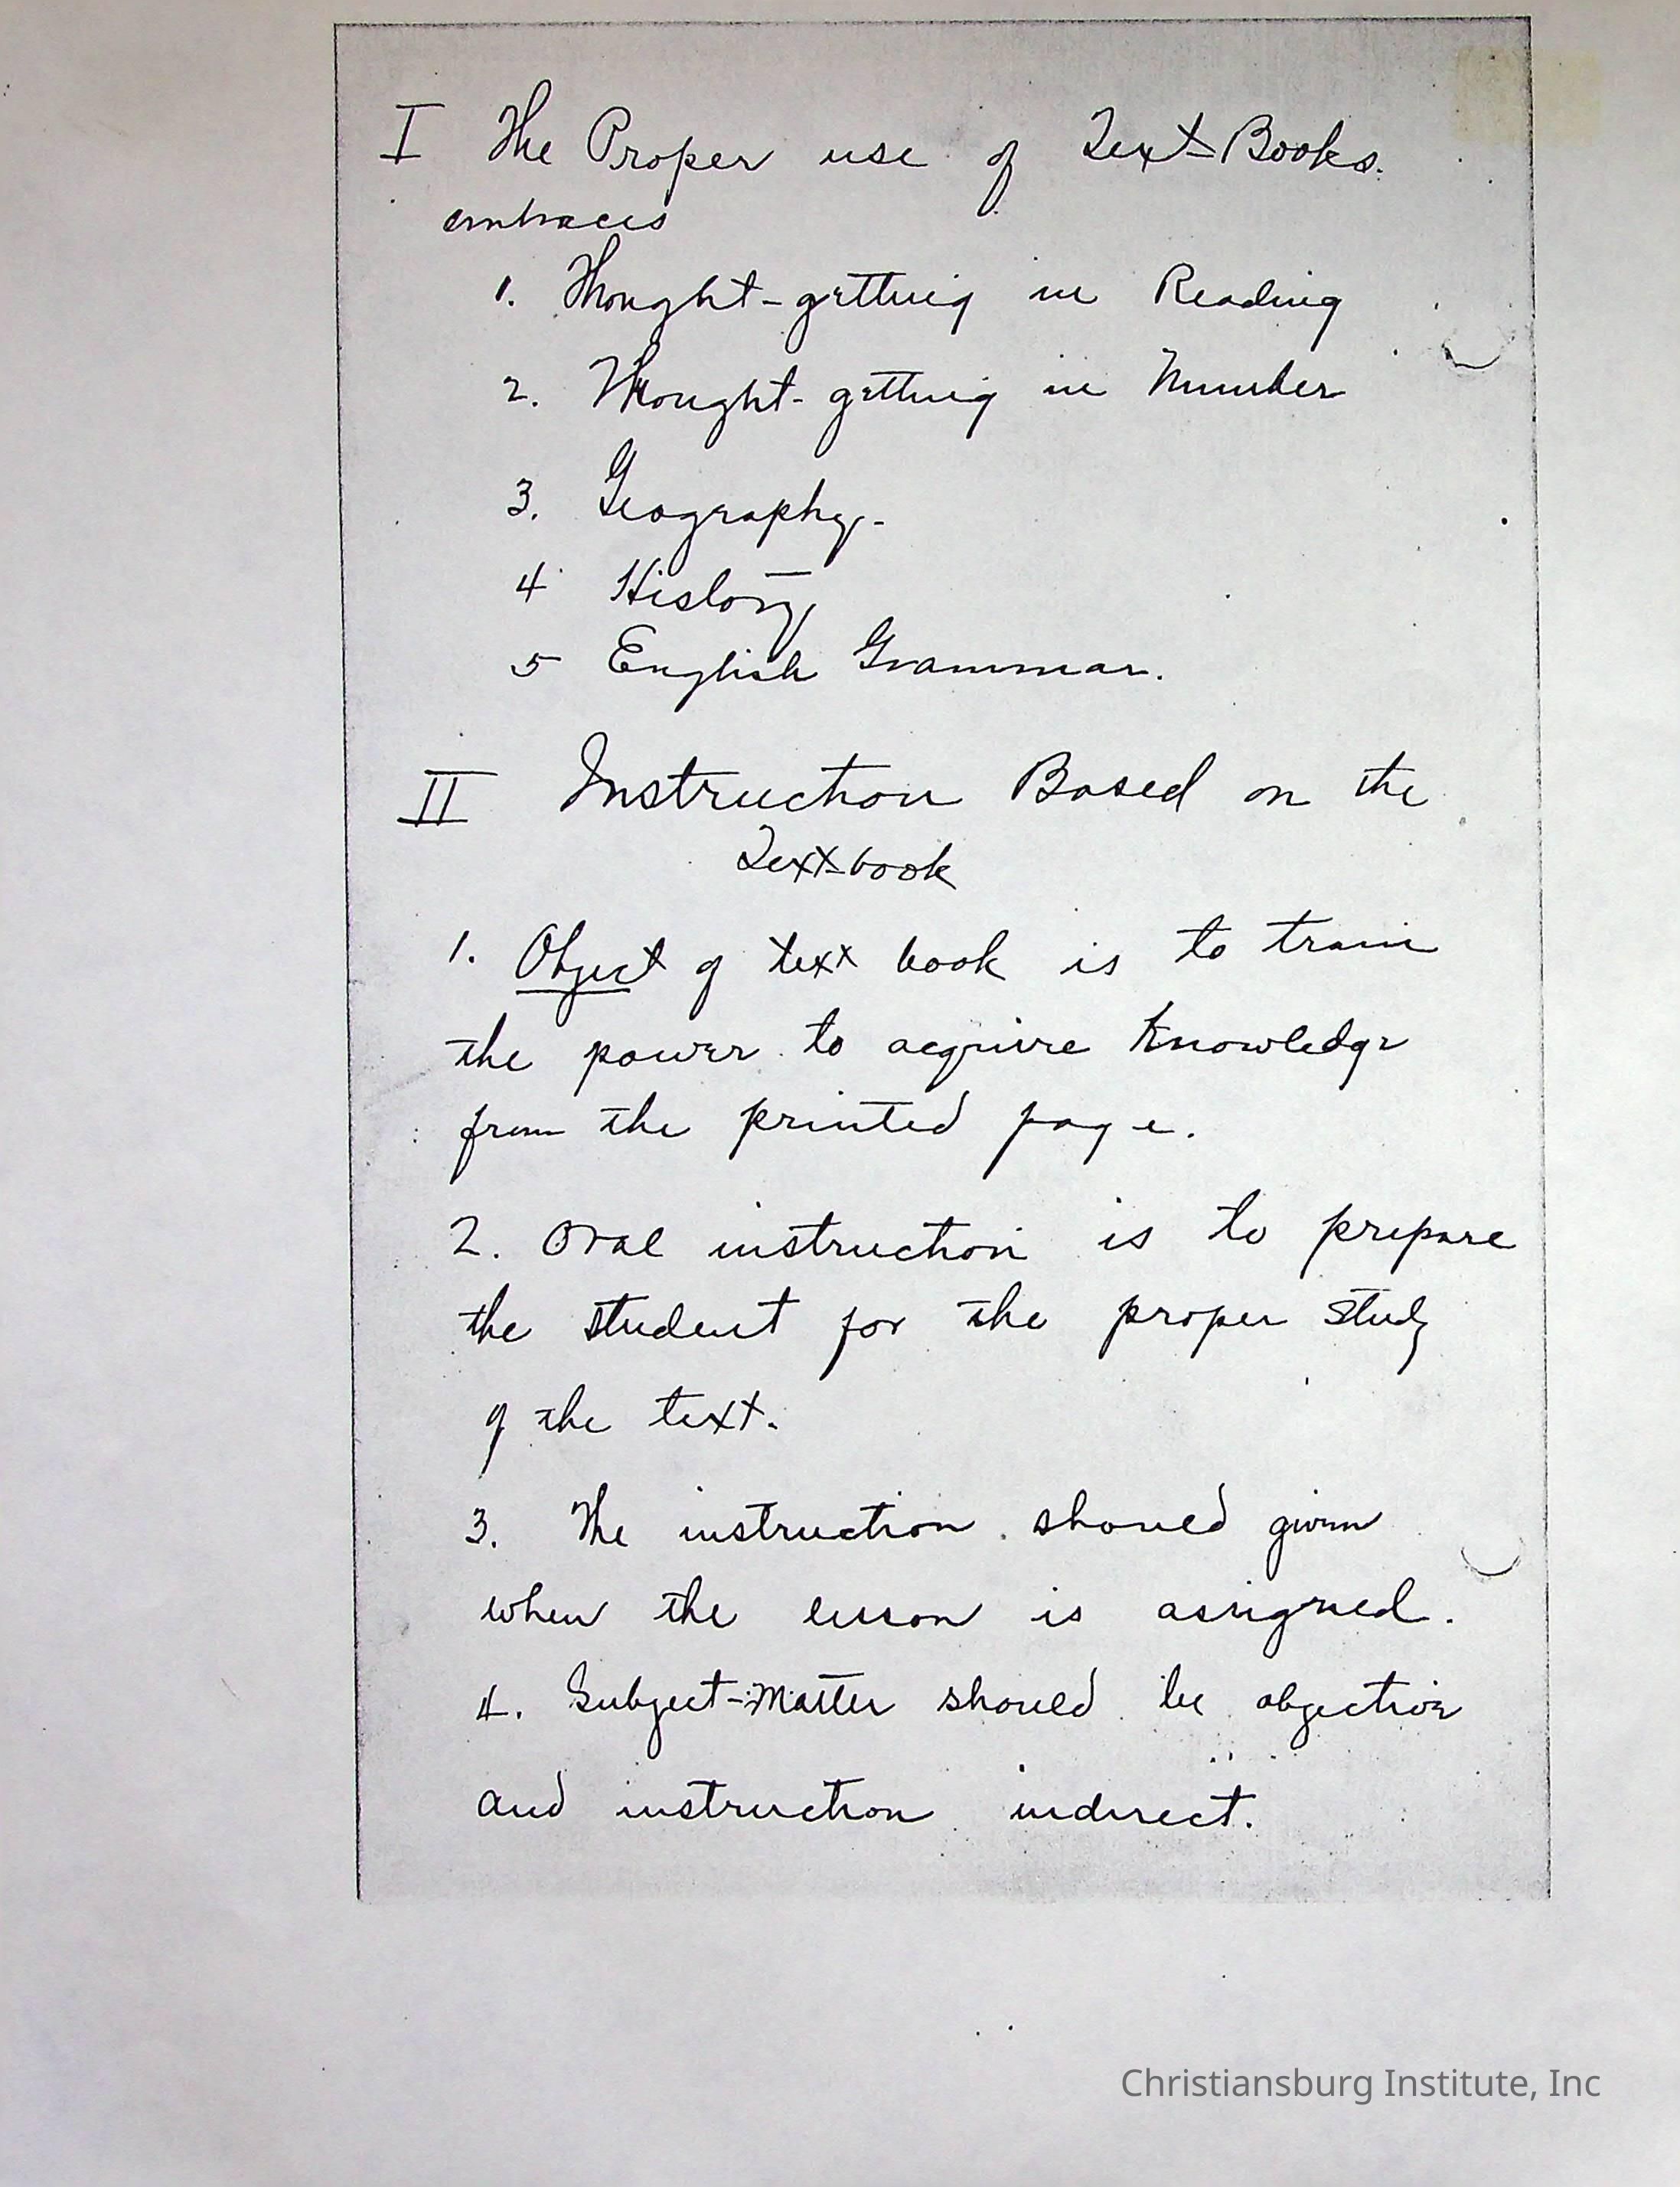 I The Proper use of Text-Books.
embraces
1. Thought-getting in Reading
2. Thought-getting in Number
3. Geography.
4 History
5 English Grammar.
II Instruction Based on the
Text-book
1. Object of text book is to train
the power to acquire knowledge
from the printed page.
2. Oral instruction is to prepare
the student for the proper study
of the text.
3. The instruction should given
when the lesson is assigned.
4. Subject-Matter should be objective
and instruction indirect.
Christiansburg Institute, Inc